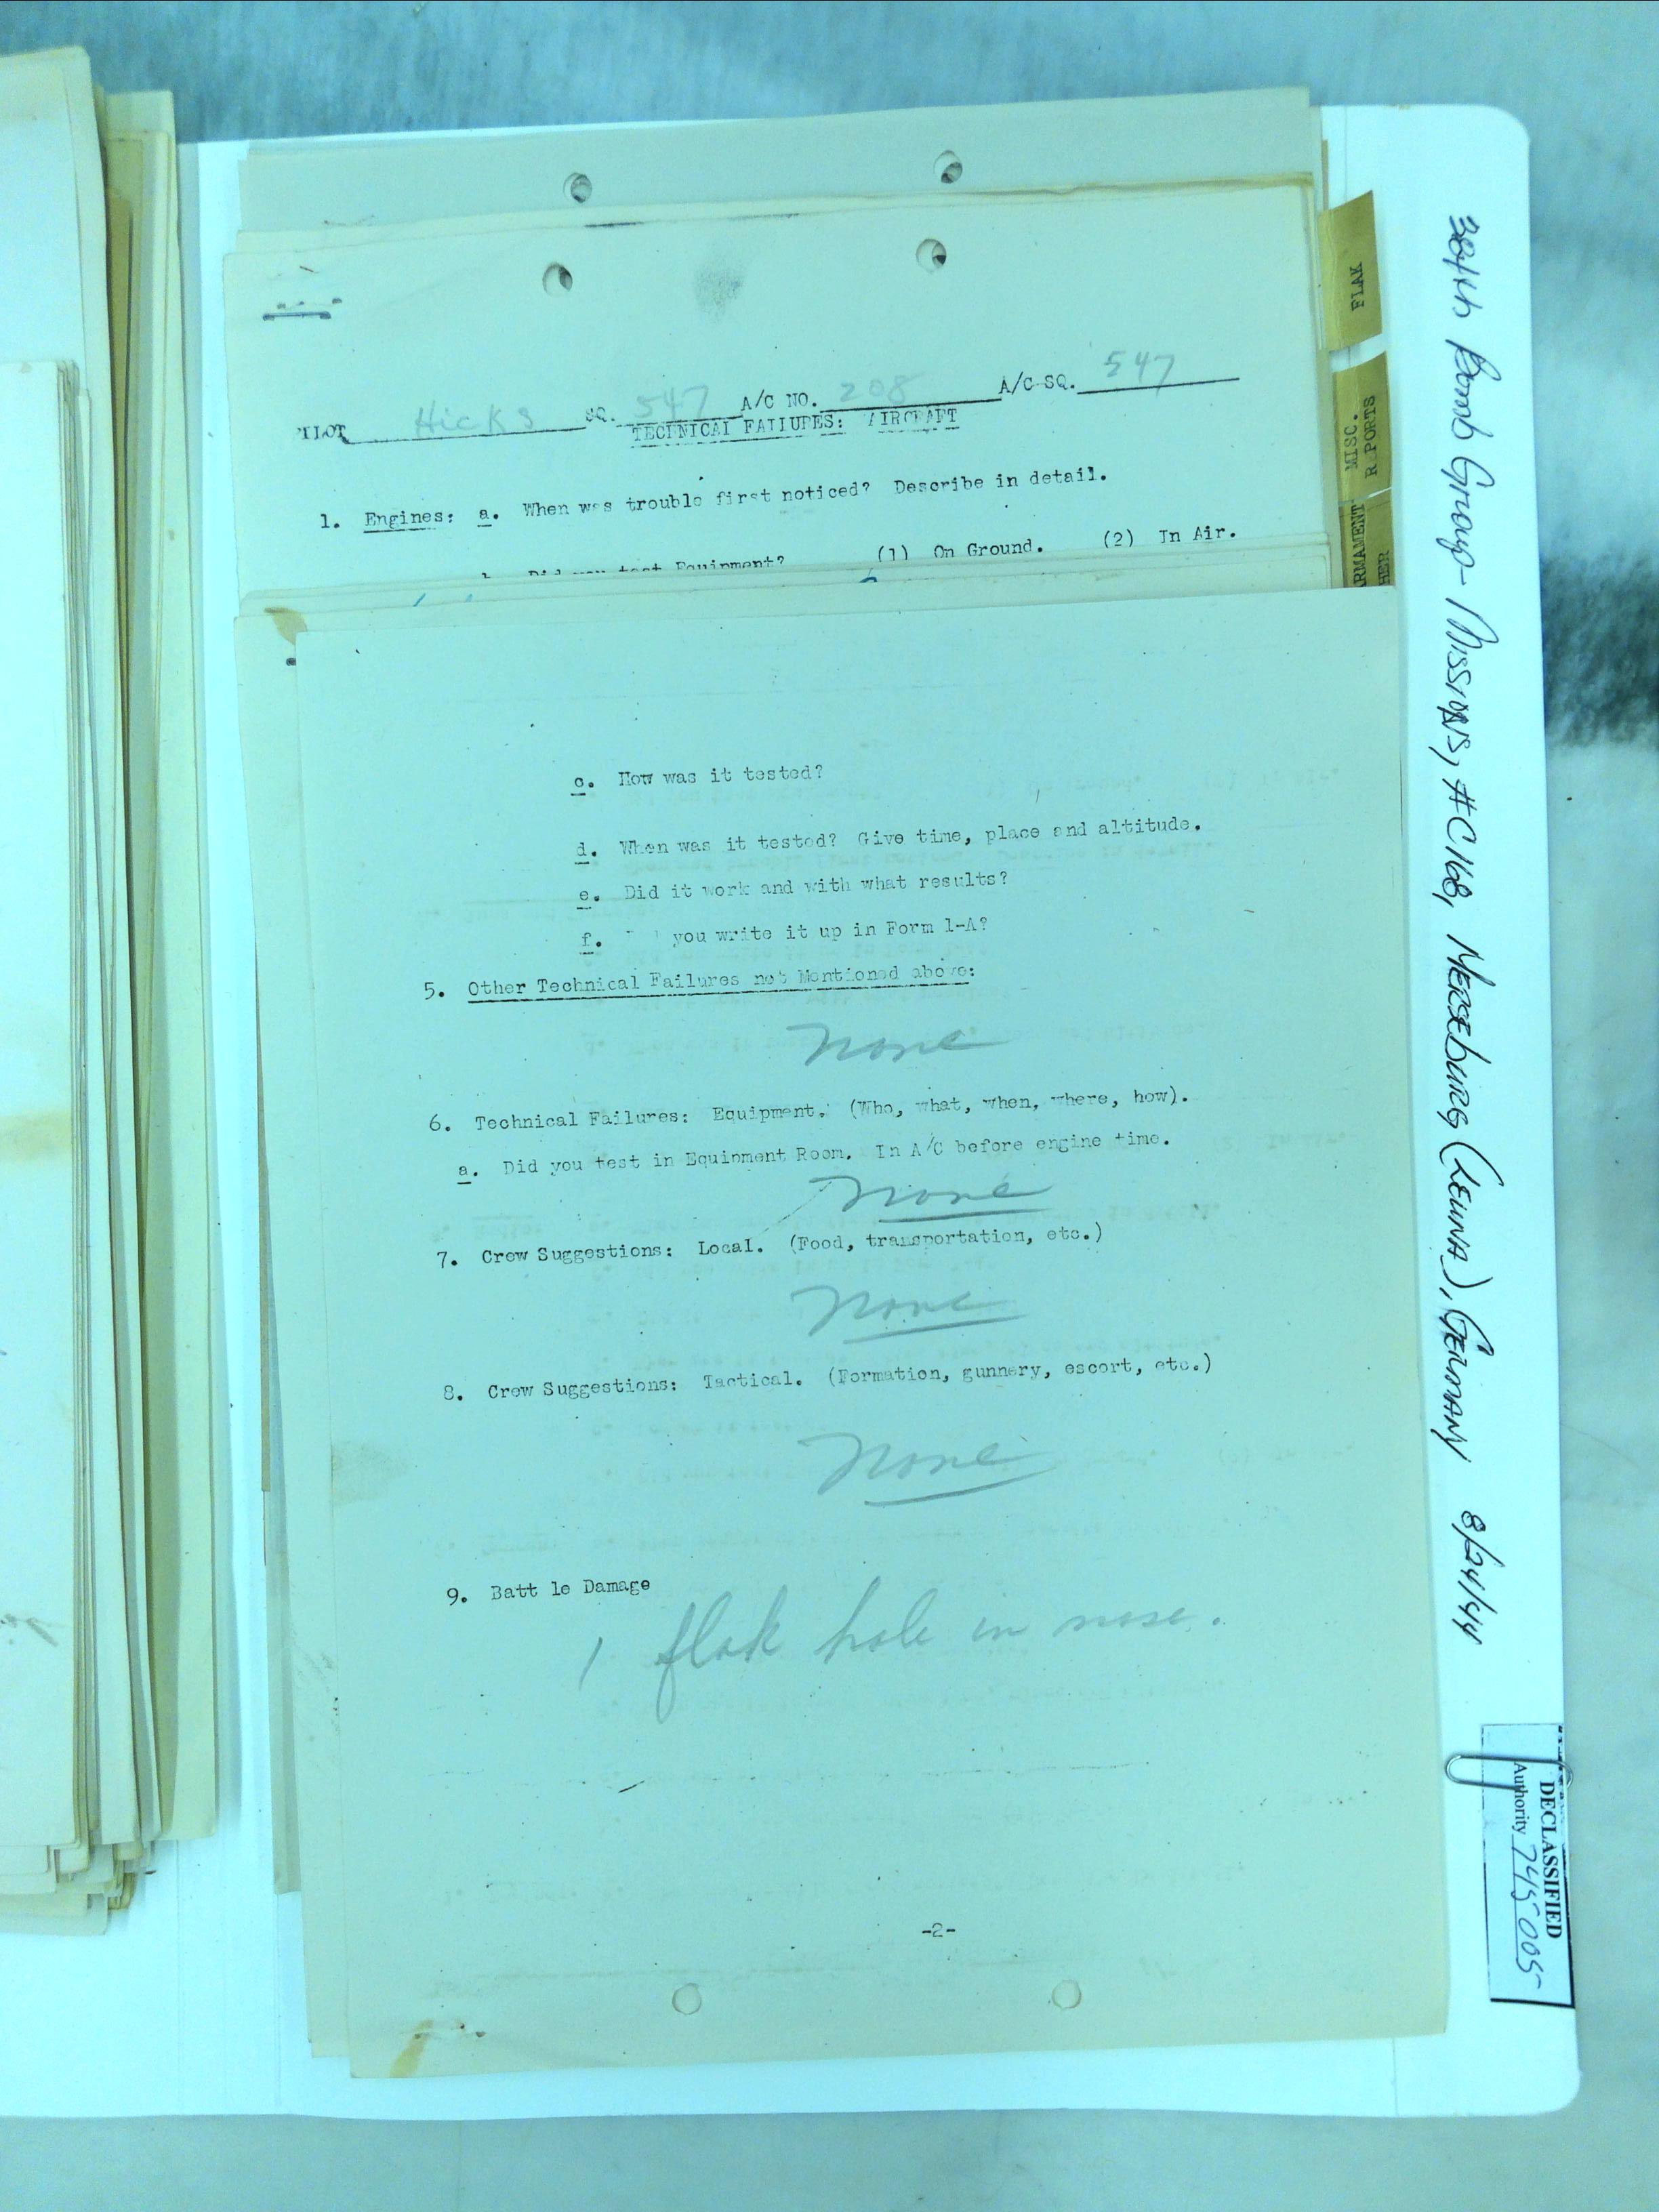 PILOT Hicks SQ. 547 A/C NO. 208 A/C SQ. 547
TECHNICAL FAILURES: AIRCRAFT
1. Engines: a. When was trouble first noticed? Describe in detail.
Did you test Equipment? (1) On Ground. (2) In Air.
c. How was it tested?
d. When was it tested? Give time, place and altitude.
e. Did it work and with what results?
f. you write it up in Form 1-A?
5. Other Technical Failures not Mentioned above:
None
6. Technical Failures: Equipment. (Who, what, when, where, how).
a. Did you test in Equipment Room. In A/C before engine time.
None
7. Crew Suggestions: Local. (Food, transportation, etc.)
None
8. Crew Suggestions: Tactical. (Formation, gunnery, escort, etc.)
None
9. Batt le Damage
1 flak hole in nose.
-2-
FLAK
MISC.
R PORTS
RMAMENT
HER
384th Bomb Group - Missions, #C168, MERSEBURG (LEUNA), GERMANY 8/24/44
DECLASSIFIED
Authority 745005